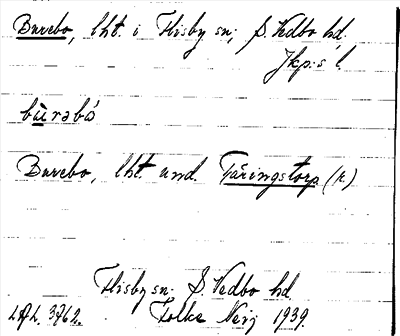 Burebo, lht. i Flisby sn; S. Vedbo hd.
Jkp:s l.
bùrəbó
Burebo, lht und. Täringstorp (R.)
Flisby sn. S. Vedbo hd
Folke Nerj 1939.